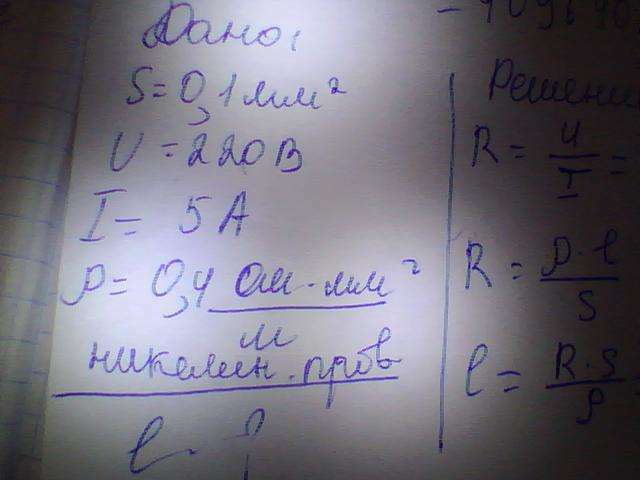 Дано:
S = 0,1 мм²
U = 220 В
I = 5 А
ρ = 0,4 Ом · мм²
м
никелин. пров
l - ?
Решени
R = U
I =
R = ρ · l
S
l = R · S
ρ